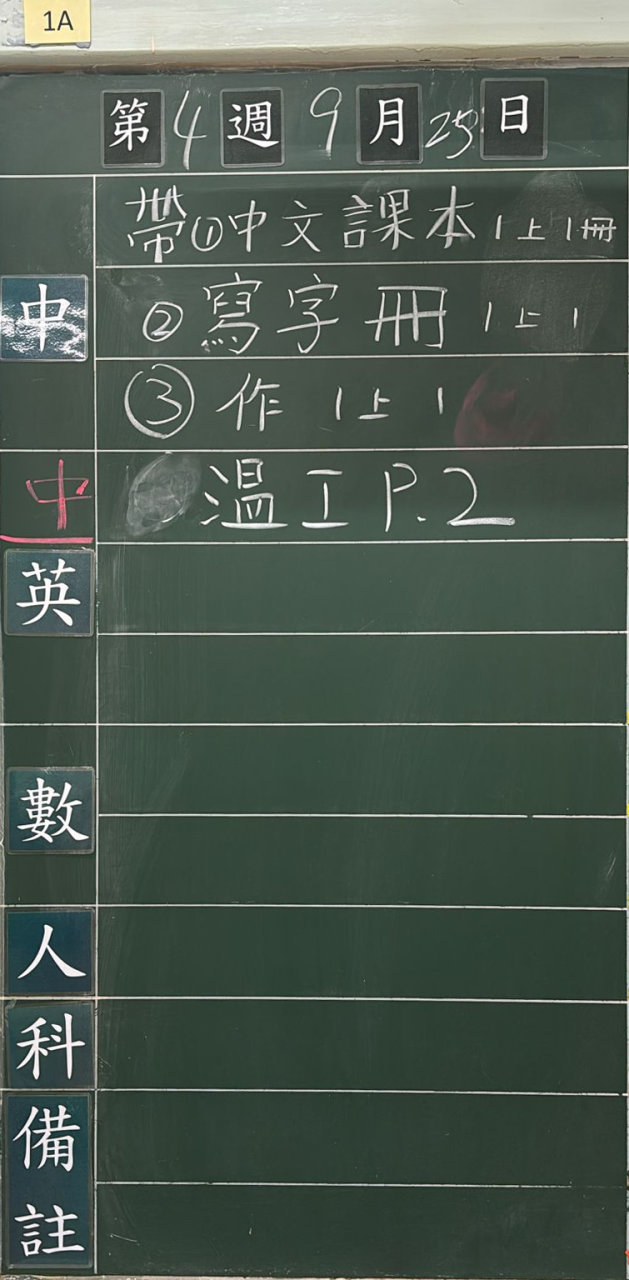 1A
第4週9月25日
帶①中文課本1上1冊
中
②寫字冊1上1
③作1上1
中 溫工P.2
英
數
人
科
備
註